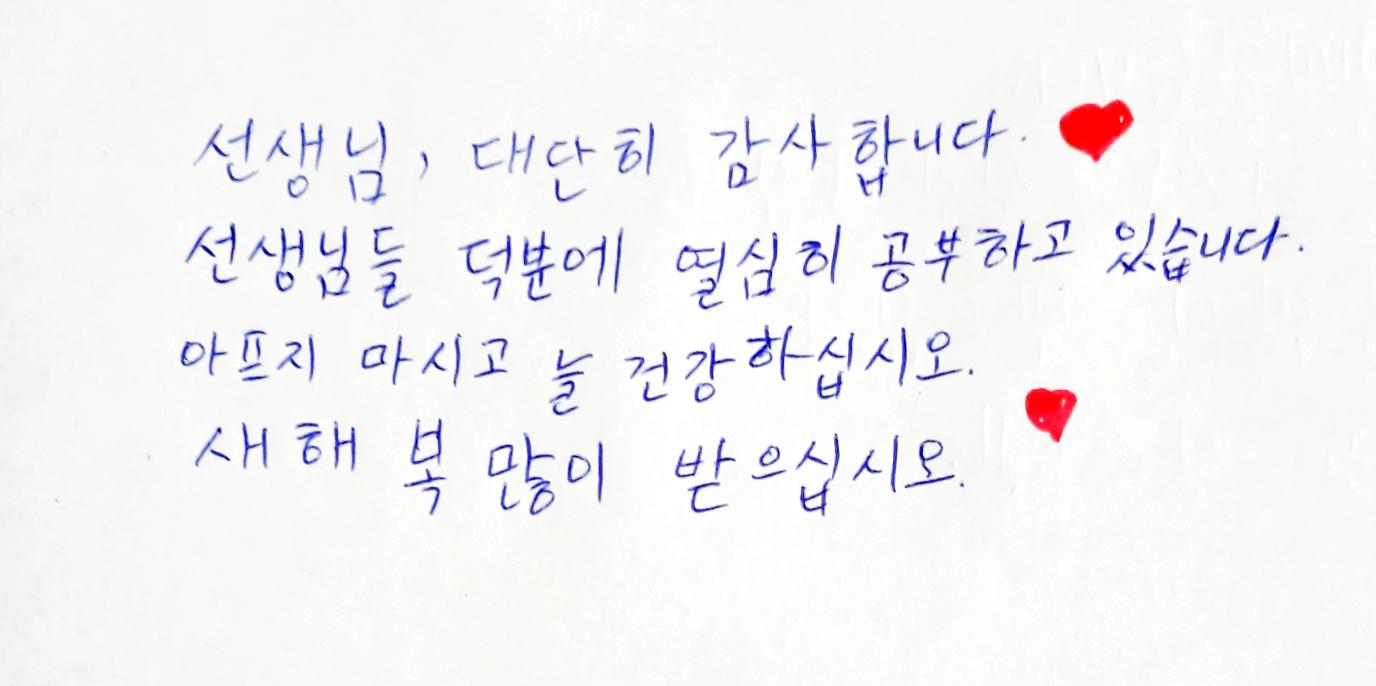 선생님, 대단히 감사합니다.
선생님들 덕분에 열심히 공부하고 있습니다.
아프지 마시고 늘 건강하십시오.
새해 복 많이 받으십시오.